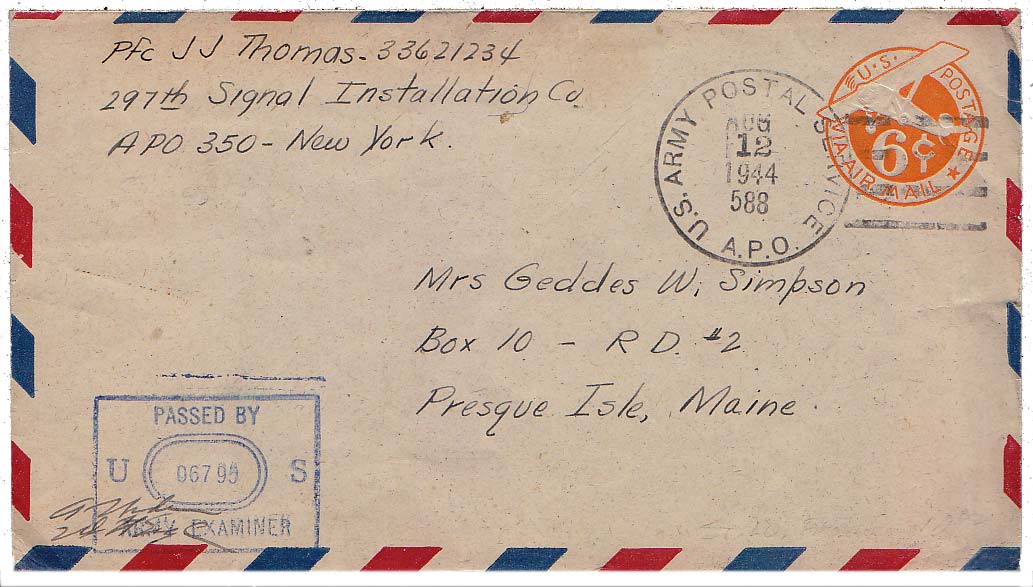 Pfc J J Thomas - 33621234
297th Signal Installation Co
APO 350 - New York.
U.S. POSTAGE
VIA AIR MAIL
6¢
U.S. ARMY POSTAL SERVICE
AUG
12
1944
588
A.P.O.
Mrs Geddes W. Simpson
Box 10 - R D. #2
Presque Isle, Maine.
PASSED BY
U 06799 S
ARMY EXAMINER